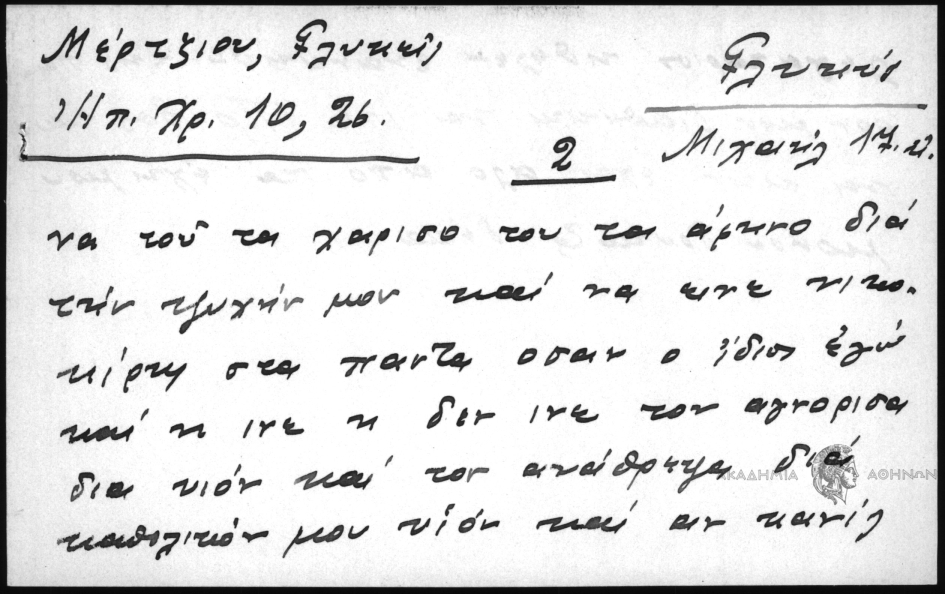 Μέρτζιου, Γλυκεῖς
Γλυκύς
Ἠπ. Χρ. 10, 26.
2
Μιχαήλ 17.
να τοῦ τα χαρισο του τα άφηνο διά
τήν τζυχήν μου καί να εινε νικο-
κίρης στα παντα οσαν ο ίδιος ἐγώ
καί κ ινε κ δεν ινε τον αγνορισα
δια υιόν καί τον ανάθρεψα διά
καθολικόν μου υἱόν καί αν κανίς
ΑΚΑΔΗΜΙΑ ΑΘΗΝΩΝ